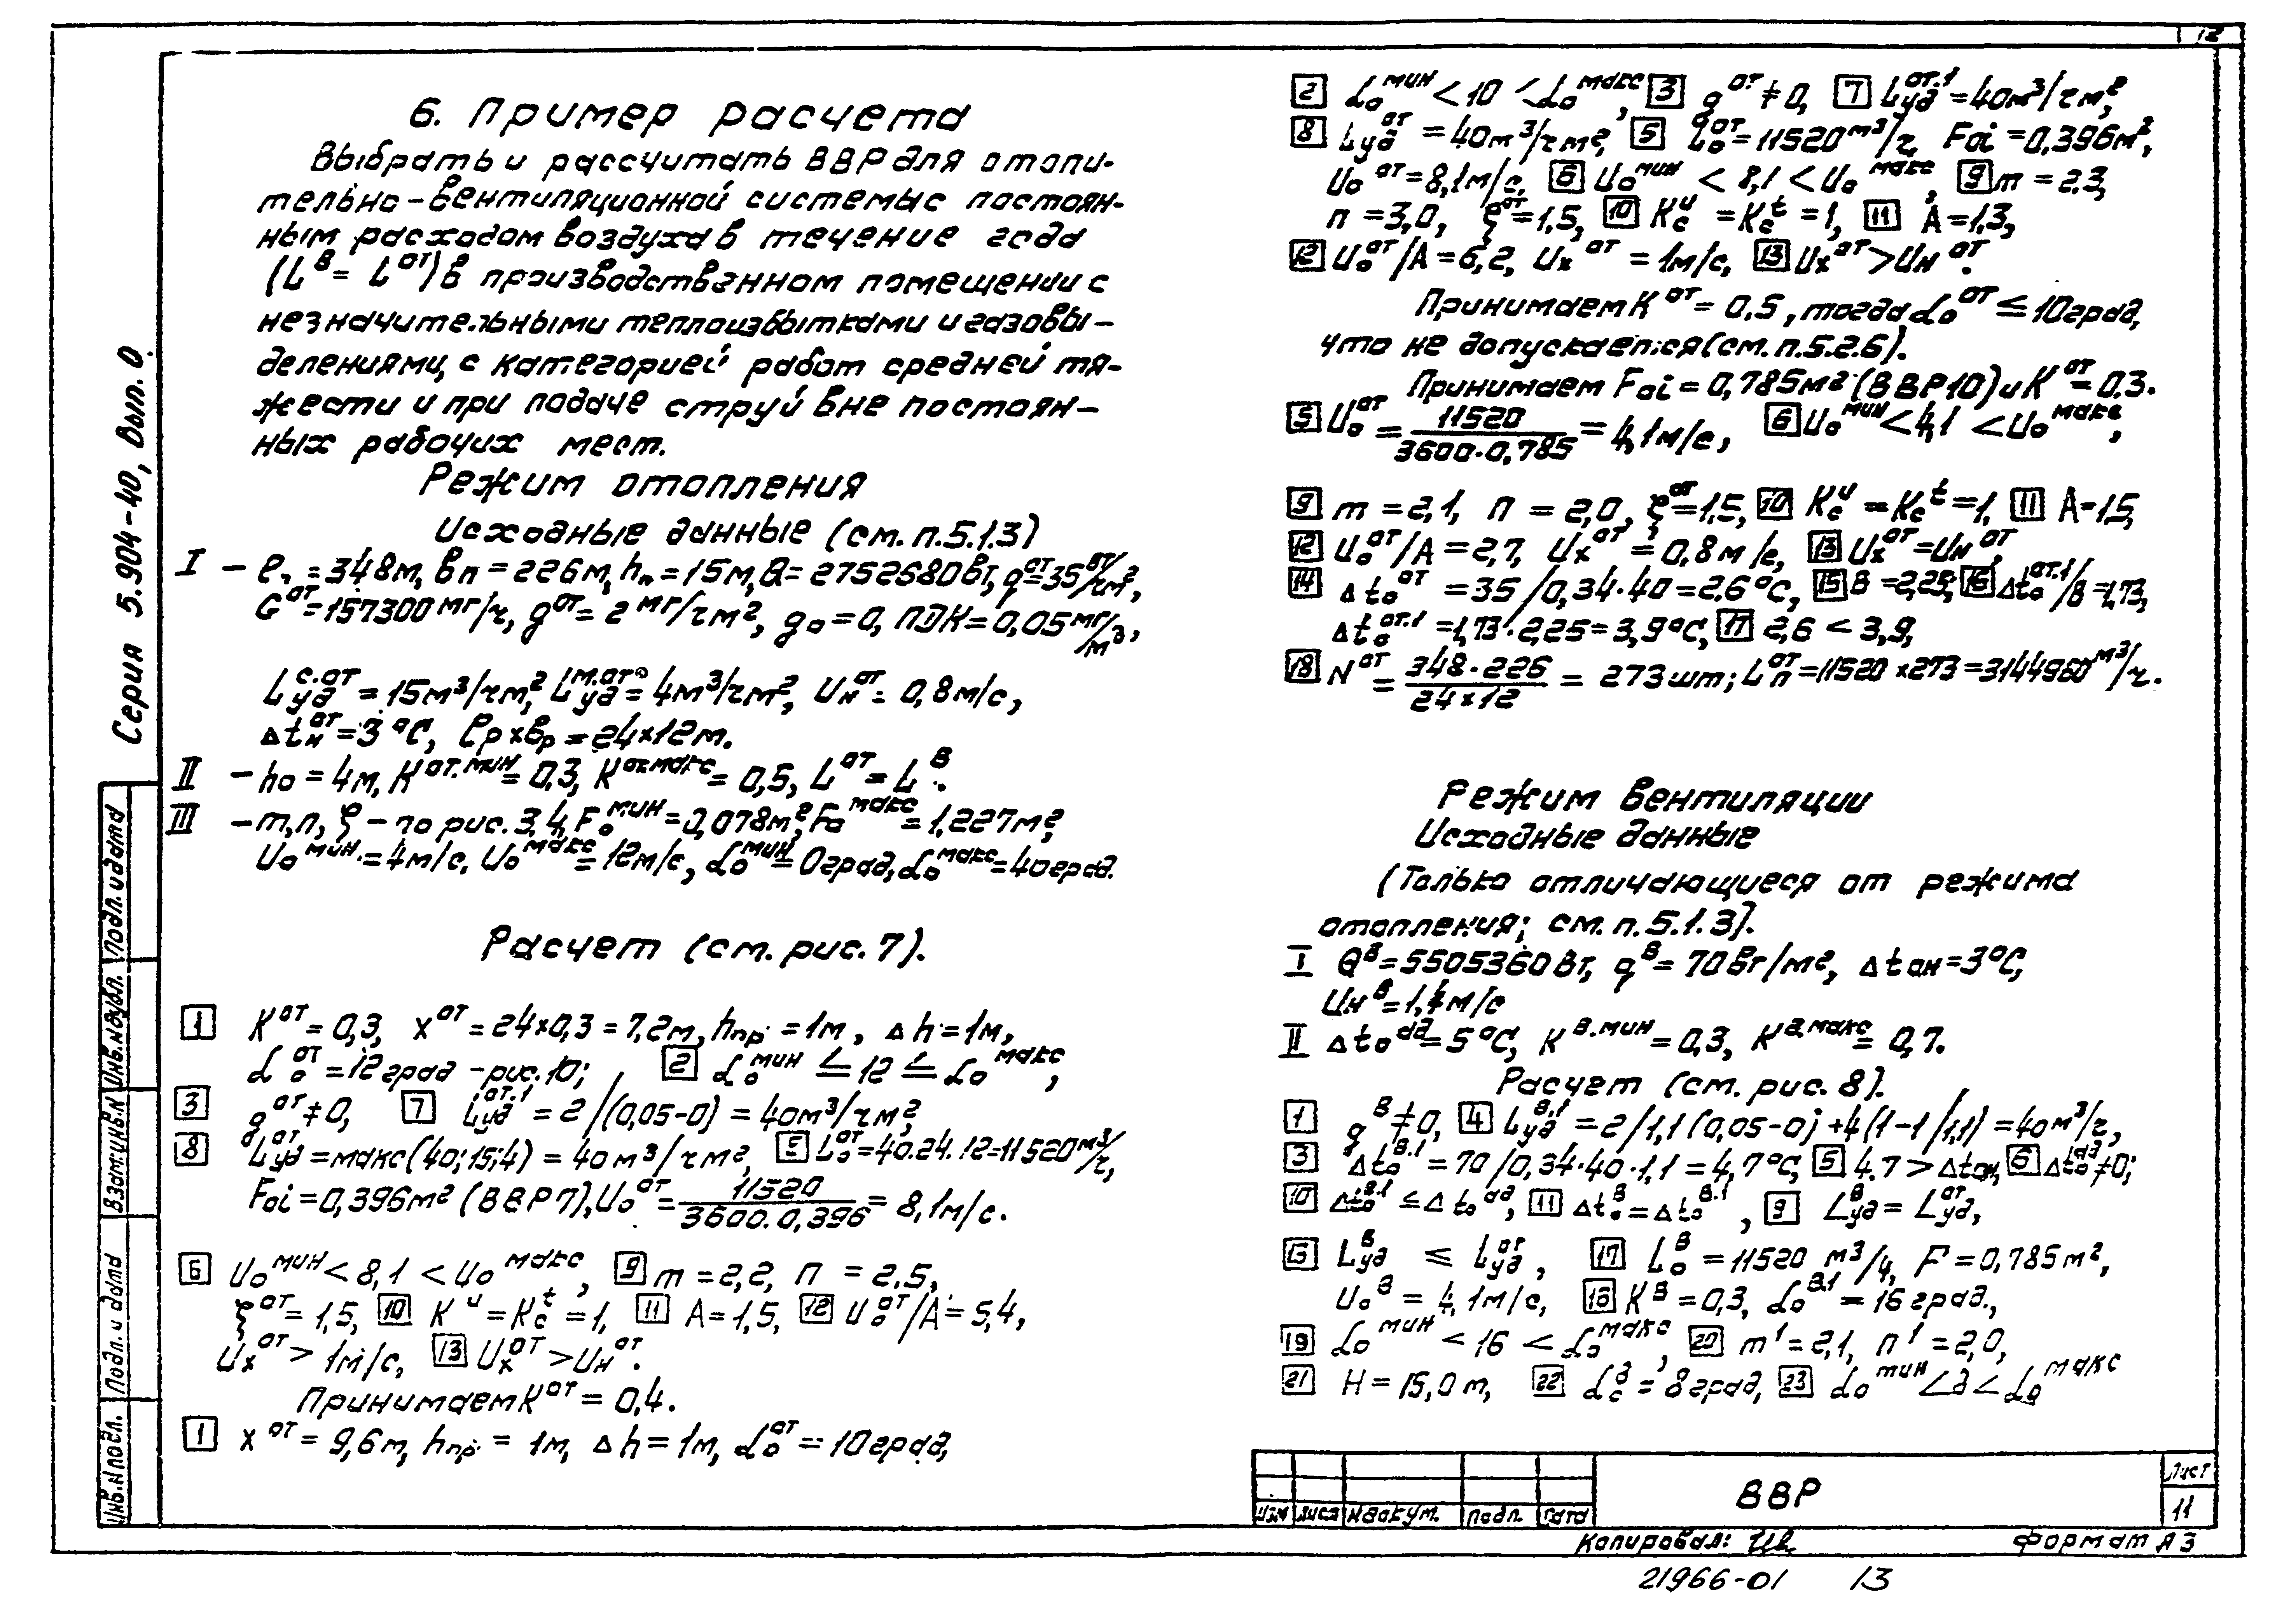 12
6. Пример расчета
Выбрать и рассчитать ВВР для отопи-
тельно-вентиляционной системы с постоян-
ным расходом воздуха в течение года
(Lᴮ = Lᵒᵀ) в производственном помещении с
незначительными теплоизбытками и газовы-
делениями, с категорией работ средней тя-
жести и при подаче струй вне постоян-
ных рабочих мест.
Режим отопления
Исходные данные (см. п.5.1.3)
I – ℓп = 348м, вп = 226м, hп = 15м, Q = 2752680Вт, qᵒᵀ = 35 вт/чм²,
Gᵒᵀ = 157300 мг/ч, gᵒᵀ = 2 мг/чм², g₀ = 0, ПДК = 0,05 мг/м³,
Lуд^с.от = 15м³/чм², Lуд^м.от = 4м³/чм², Uн^от = 0,8м/с,
Δtн^от = 3°С, ℓр×вр = 24×12м.
II – h₀ = 4м, К^от.мин = 0,3, К^от.макс = 0,5, L^от = L^В.
III – m, n, ξ – по рис. 3,4, F₀^мин = 0,078м², F₀^макс = 1,227м²,
U₀^мин. = 4м/с, U₀^макс = 12м/с, α₀^мин = 0град, α₀^макс = 40град.
Расчет (см. рис. 7).
1 К^от = 0,3, х^от = 24×0,3 = 7,2м, hпр = 1м, Δh = 1м,
α₀^от = 12град - рис. 10; 2 α₀^мин ≤ 12 ≤ α₀^макс,
3 g^от ≠ 0, 7 Lуд^от.1 = 2/(0,05-0) = 40м³/чм²,
8 Lуд^от = макс(40; 15; 4) = 40м³/чм², 5 L₀^от = 40.24.12 = 11520м³/ч,
F₀i = 0,396м² (ВВР7), U₀^от = 11520/3600.0,396 = 8,1м/с.
6 U₀^мин < 8,1 < U₀^макс, 9 m = 2,2, n = 2.5,
ξ^от = 1,5, 10 К^u = Кс^t = 1, 11 А = 1,5, 12 U₀^от/А = 5,4,
Uх^от > 1м/с, 13 Uх^от > Uн^от.
Принимаем К^от = 0,4.
1 х^от = 9,6м, hпр. = 1м, Δh = 1м, α₀^от = 10град,
2 α₀^мин < 10 < α₀^макс, 3 g^от ≠ 0, 7 Lуд^от.1 = 40м³/чм²,
8 Lуд^от = 40м³/чм², 5 L₀^от = 11520м³/ч, F₀i = 0,396м²,
U₀^от = 8,1м/с, 6 U₀^мин < 8,1 < U₀^макс, 9 m = 2.3,
n = 3,0, ξ^от = 1,5, 10 Кс^u = Кс^t = 1, 11 А = 1,3,
12 U₀^от/А = 6,2, Uх^от = 1м/с, 13 Uх^от > Uн^от.
Принимаем К^от = 0.5, тогда α₀^от ≤ 10град,
что не допускается (см. п.5.2.6).
Принимаем F₀i = 0,785м² (ВВР10) и К^от = 0.3.
5 U₀^от = 11520/3600.0,785 = 4,1м/с, 6 U₀^мин < 4,1 < U₀^макс,
9 m = 2,1, n = 2,0, ξ^от = 1,5, 10 Кс^u = Кс^t = 1, 11 А = 1.5,
12 U₀^от/А = 2,7, Uх^от = 0,8м/с, 13 Uх^от = Uн^от,
14 Δt₀^от = 35/0,34·40 = 2.6°С, 15 В = 2,25; 16 Δt₀^от.1/В = 1,73,
Δt₀^от.1 = 1,73·2,225 = 3,9°С, 17 2,6 < 3,9,
18 N^от = 348·226/24×12 = 273шт; Lп^от = 11520×273 = 3144960м³/ч.
Режим вентиляции
Исходные данные
(Только отличающиеся от режима
отопления; см. п.5.1.3).
I Q^В = 5505360Вт, q^В = 70Вт/м², Δtон = 3°С,
Uн^В = м/с
II Δt₀^дд = 5°С, К^В.мин = 0,3, К^В.макс = 0,7.
Расчет (см. рис. 8).
1 g^В ≠ 0, 4 Lуд^В.1 = 2/1,1(0,05-0)+4(1-1/1,1) = 40м³/ч,
3 Δt₀^В.1 = 70/0,34·40·1,1 = 4,7°С, 5 4.7 > Δtон, 6 Δt₀^дд ≠ 0;
10 Δt₀^В.1 ≤ Δt₀^дд, 11 Δt₀^В = Δt₀^В.1, 9 Lуд^В = Lуд^от,
15 Lуд^В ≤ Lуд^от, 17 L₀^В = 11520 м³/ч, F = 0,785м²,
U₀^В = 4,1м/с, 18 К^В = 0,3, α₀^В.1 = 16град.,
19 α₀^мин < 16 < α₀^макс, 20 m¹ = 2,1, n¹ = 2,0,
21 Н = 15,0м, 22 αс^д = 8град, 23 α₀^мин < д < α₀^макс
Серия 5.904-40, Вып. 0
Инв.№подл. Подп. и дата Взам.инв.№ Инв.№дубл. Подп. и дата
Изм Лист №докум. Подп. Дата
ВВР
Лист
11
Копировал:
Формат А3
21966-01 13